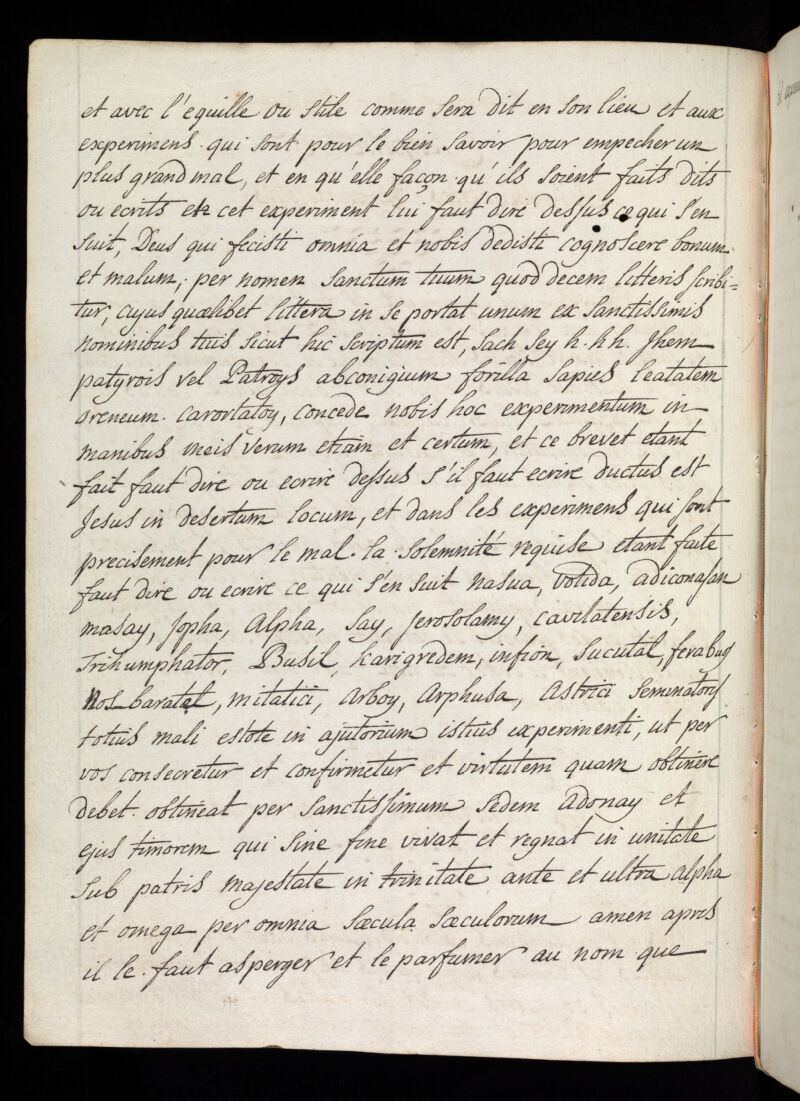 et avec l'equille ou stile comme sera dit en son lieu et aux
experimens qui sont pour le bien savoir pour empecher un
plus grand mal, et en qu'elle façon qu'ils soient faits dits
ou ecrits en cet experiment lui faut dire dessus ce qui s'en
suit, Deus qui fecisti omnia et nobis dedisti cognoscere bonum
et malum, per nomen sanctum tuum quod decem litteris scribi=
tur, cujus quælibet littera in se portat unum ex sanctissimis
nominibus tuis sicut hic scriptum est, sach sey h. h h. Jhem
patyrois vel Patroys abconigium forilla sapies leatatem
oreneum. cavortatoy, concede nobis hoc experimentum in
manibus meis verum etiam et certum, et ce brevet etant
fait faut dire ou ecrire dessus s'il faut ecrire ductus est
Jesus in desertum locum, et dans les experimens qui sont
precisement pour le mal. la solemnité requise etant faite
faut dire ou ecrire ce qui s'en suit nasua, votida, adiconasan
masay, Jopha, Alpha, say, Jerosolamy, cavilatensis,
Trihumphator, Busil, karigredem, infion, sucutal, ferabus
nos baratel, mitatici, Arboy, Arphusa, Astrici seminatorij
totius mali estote in ajutorium istius experimenti, ut per
vos consecretur et confirmetur et virtutem quam obtinere
debet. obtineat per sanctissimum sedem Adonay et
ejus timorem qui sine fine vivat et regnat in unitate
sub patris majestate in trinitate ante et ultra Alpha
et omega per omnia sæcula sæculorum amen apres
il le faut asperger et le parfumer au nom que